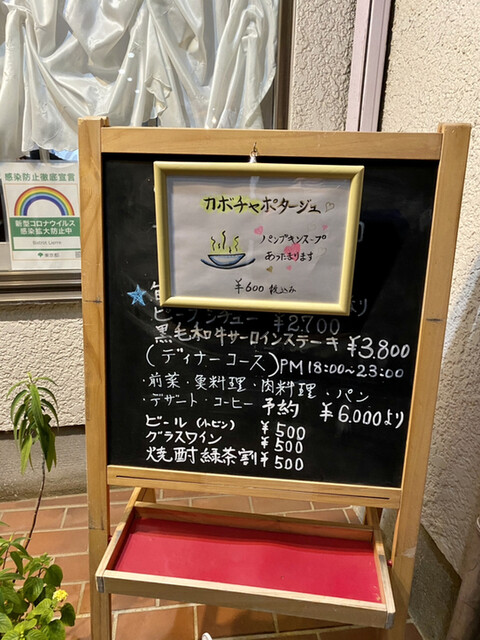 感染防止徹底宣言
新型コロナウイルス
感染拡大防止中
東京都
カボチャポタージュ
パンプキンスープ
あったまります
¥600 税込み
り
ビーフシチュー ¥2.700
黒毛和牛サーロインステーキ ¥3.800
(ディナーコース) PM18:00~23:00
・前菜・実料理・肉料理・パン
・デザート・コーヒー 予約 ¥6.000より
ビール(小ビン) ¥500
グラスワイン ¥500
焼酎緑茶割 ¥500